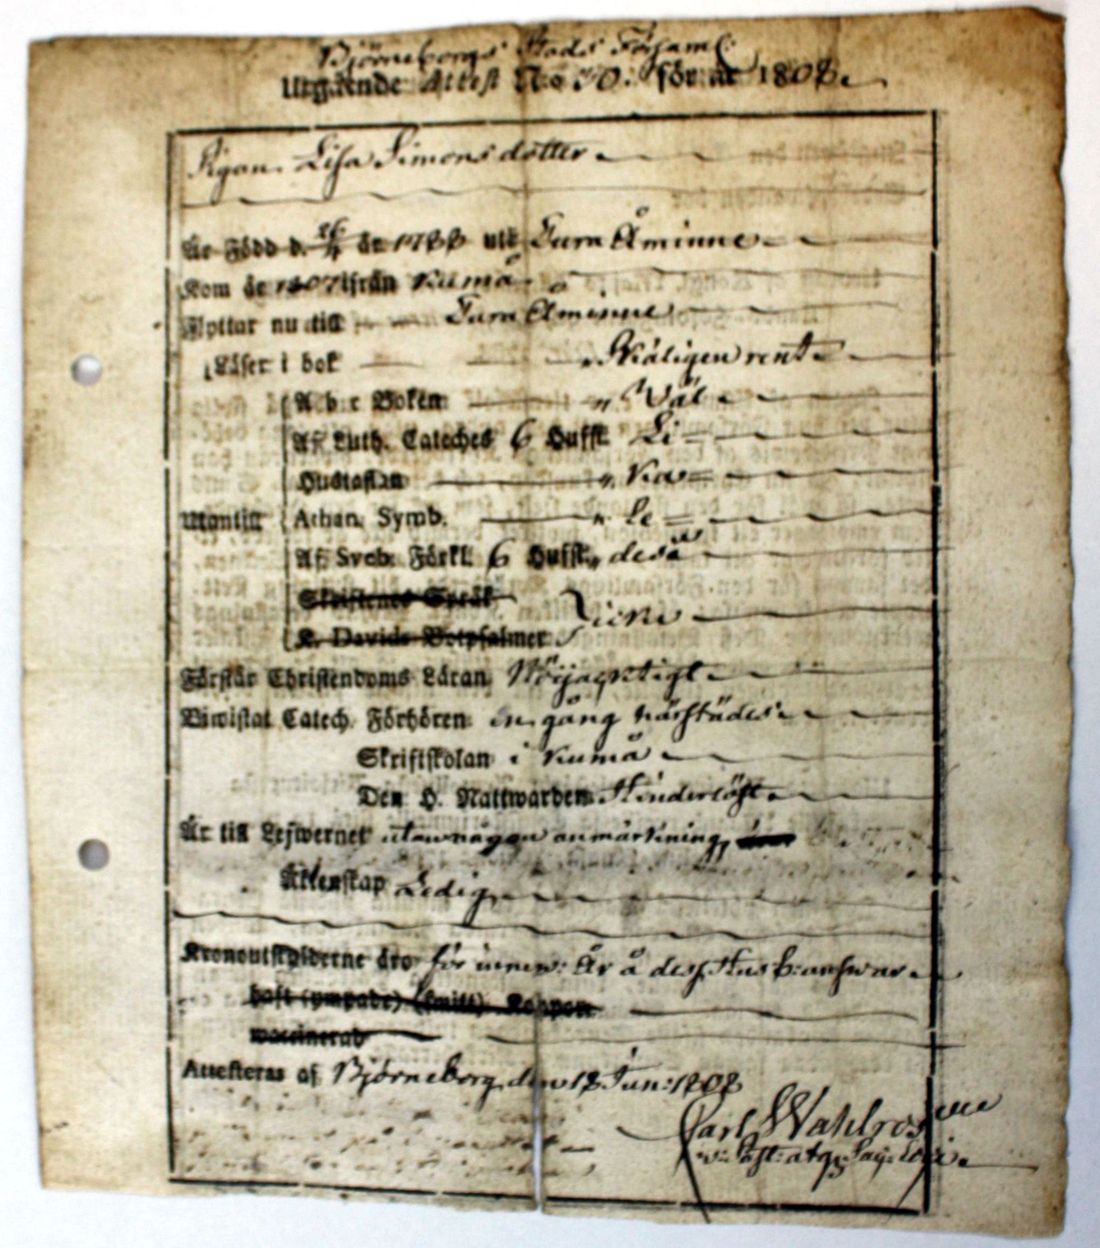 Björneborgs Stads Församl:
Utgående Attest N:o 50. för år 1808.
Pigan Lisa Simons dotter
Är Född d. 26/4 år 1788 uti Turn Åminne
Kom år 1807 ifrån Kumå
Flyttar nu till Turn Åminne
Läser i bok Skäligen rent
A b c Boken Väl
Af Luth. Cateches 6 Hufst. Li
Hustaflan
Utantill Athan. Symb. Le
Af Sveb. Förkl. 6 Hufst.
Skriftenes Språk
K. Davids Botpsalmer
Förstår Christendoms Läran Nöijacktigt
Biwistat Catech. Förhören en gång härstädes
Skriftskolan i Kumå
Den H. Nattwarden Hinderlöst
Är till Lefwernet utan någon anmärkning,
Äktenskap Ledig
Kronoutskylderne äro för innew: År å dess Husb: answar
haft (ympade) (smitt) Koppor
vaccinerad
Attesteras af Björneborg den 18 Jun: 1808
Carl Wahlroos